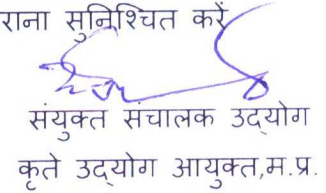 राना सुनिश्चित करें
संयुक्त संचालक उद्योग
कृते उद्योग आयुक्त,म.प्र.